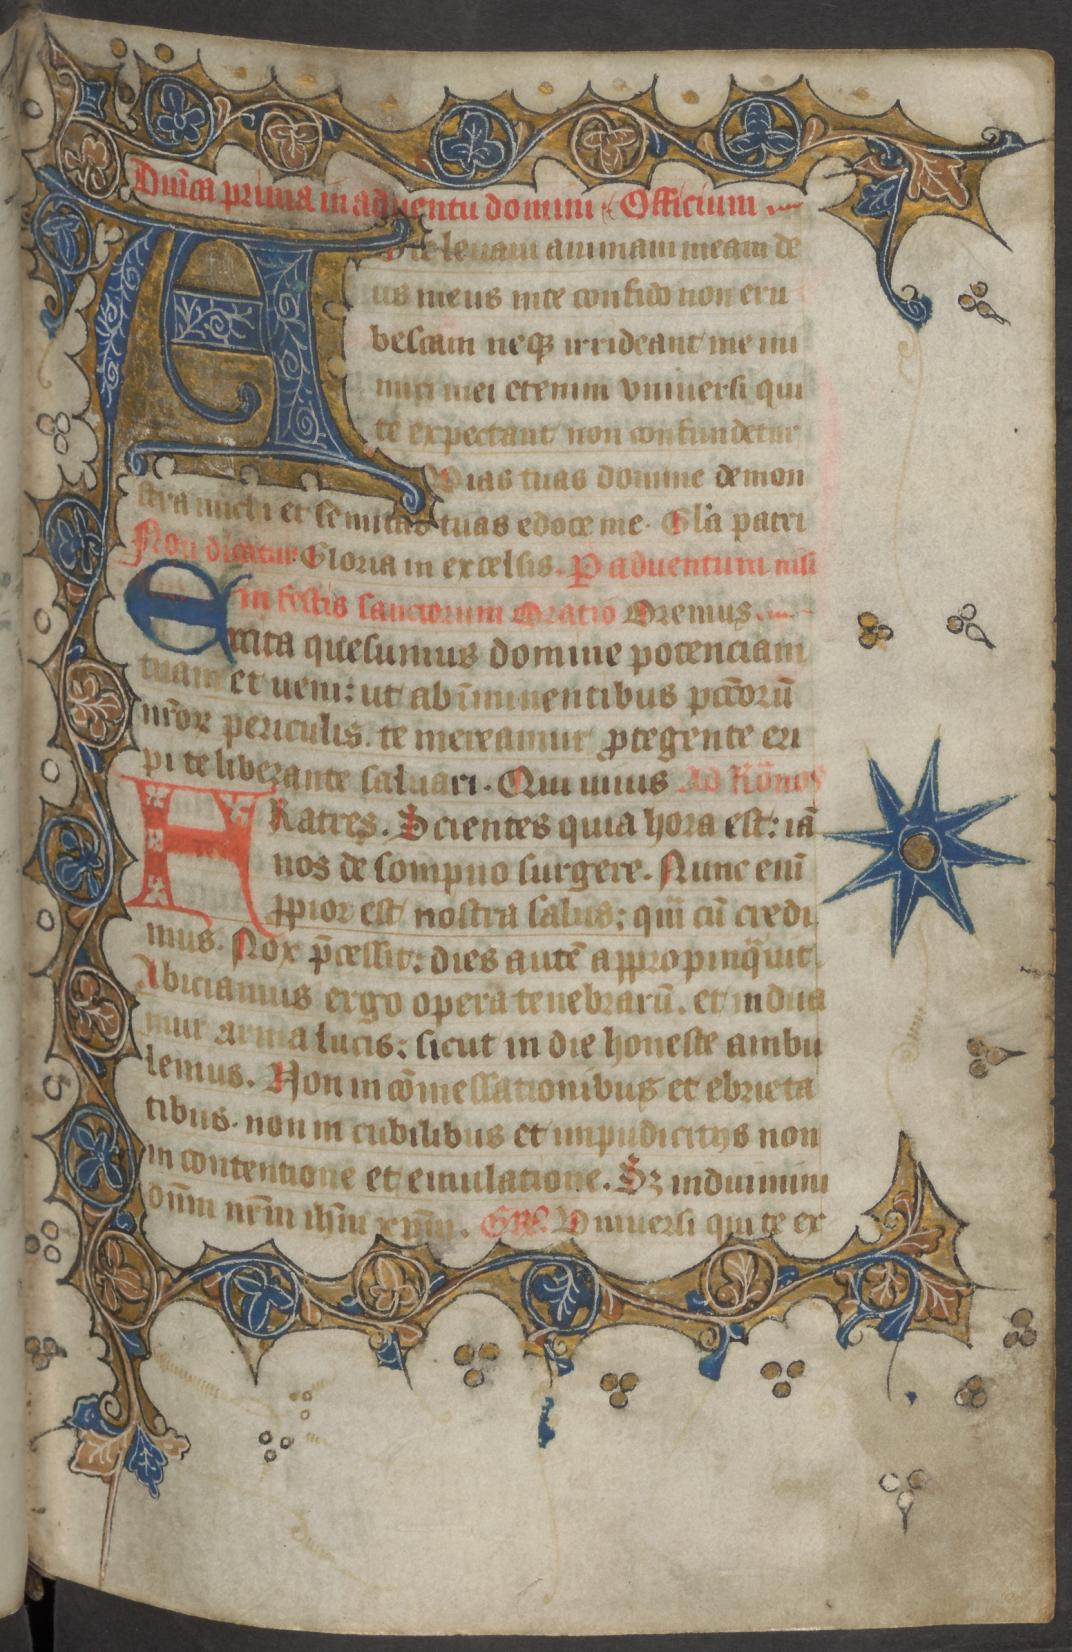 Dn̄ica prima in aduentu domini Officium
A
d te leuaui animam meam de
us meus in te confido non eru
bescam neqꝫ irrideant me ini
mici mei etenim vniuersi qui
te expectant non confundentur
Vias tuas domine demon
stra michi et semitas tuas edoce me. Gl'a patri
Non dicitur Gloria in excelsis. P aduentum nisi
in festis sanctorum Oratio Oremus
Excita quesumus domine potenciam
tuam et ueni: ut ab īminentibus pcc̄orū
nr̄or periculis. te mereamur ꝓtegente eri
pi te liberante saluari. Qui uiuis Ad Rōnos
FRatres. Scientes quia hora est: iā
nos de sompno surgere. Nunc enī
ꝓpior est nostra salus: qm̄ cū credi
mus. Nox p̄cessit: dies autē appropinquit
Abiciamus ergo opera tenebrarū. et indua
mur arma lucis: sicut in die honeste ambu
lemus. Non in cōmessationibus et ebrieta
tibus. non in cubilibus et impudicitijs non
in contentione et emulatione. Sꝫ induimini
dn̄m nr̄m ihm̄ xpm̄. GR̄. Vniuersi qui te ex